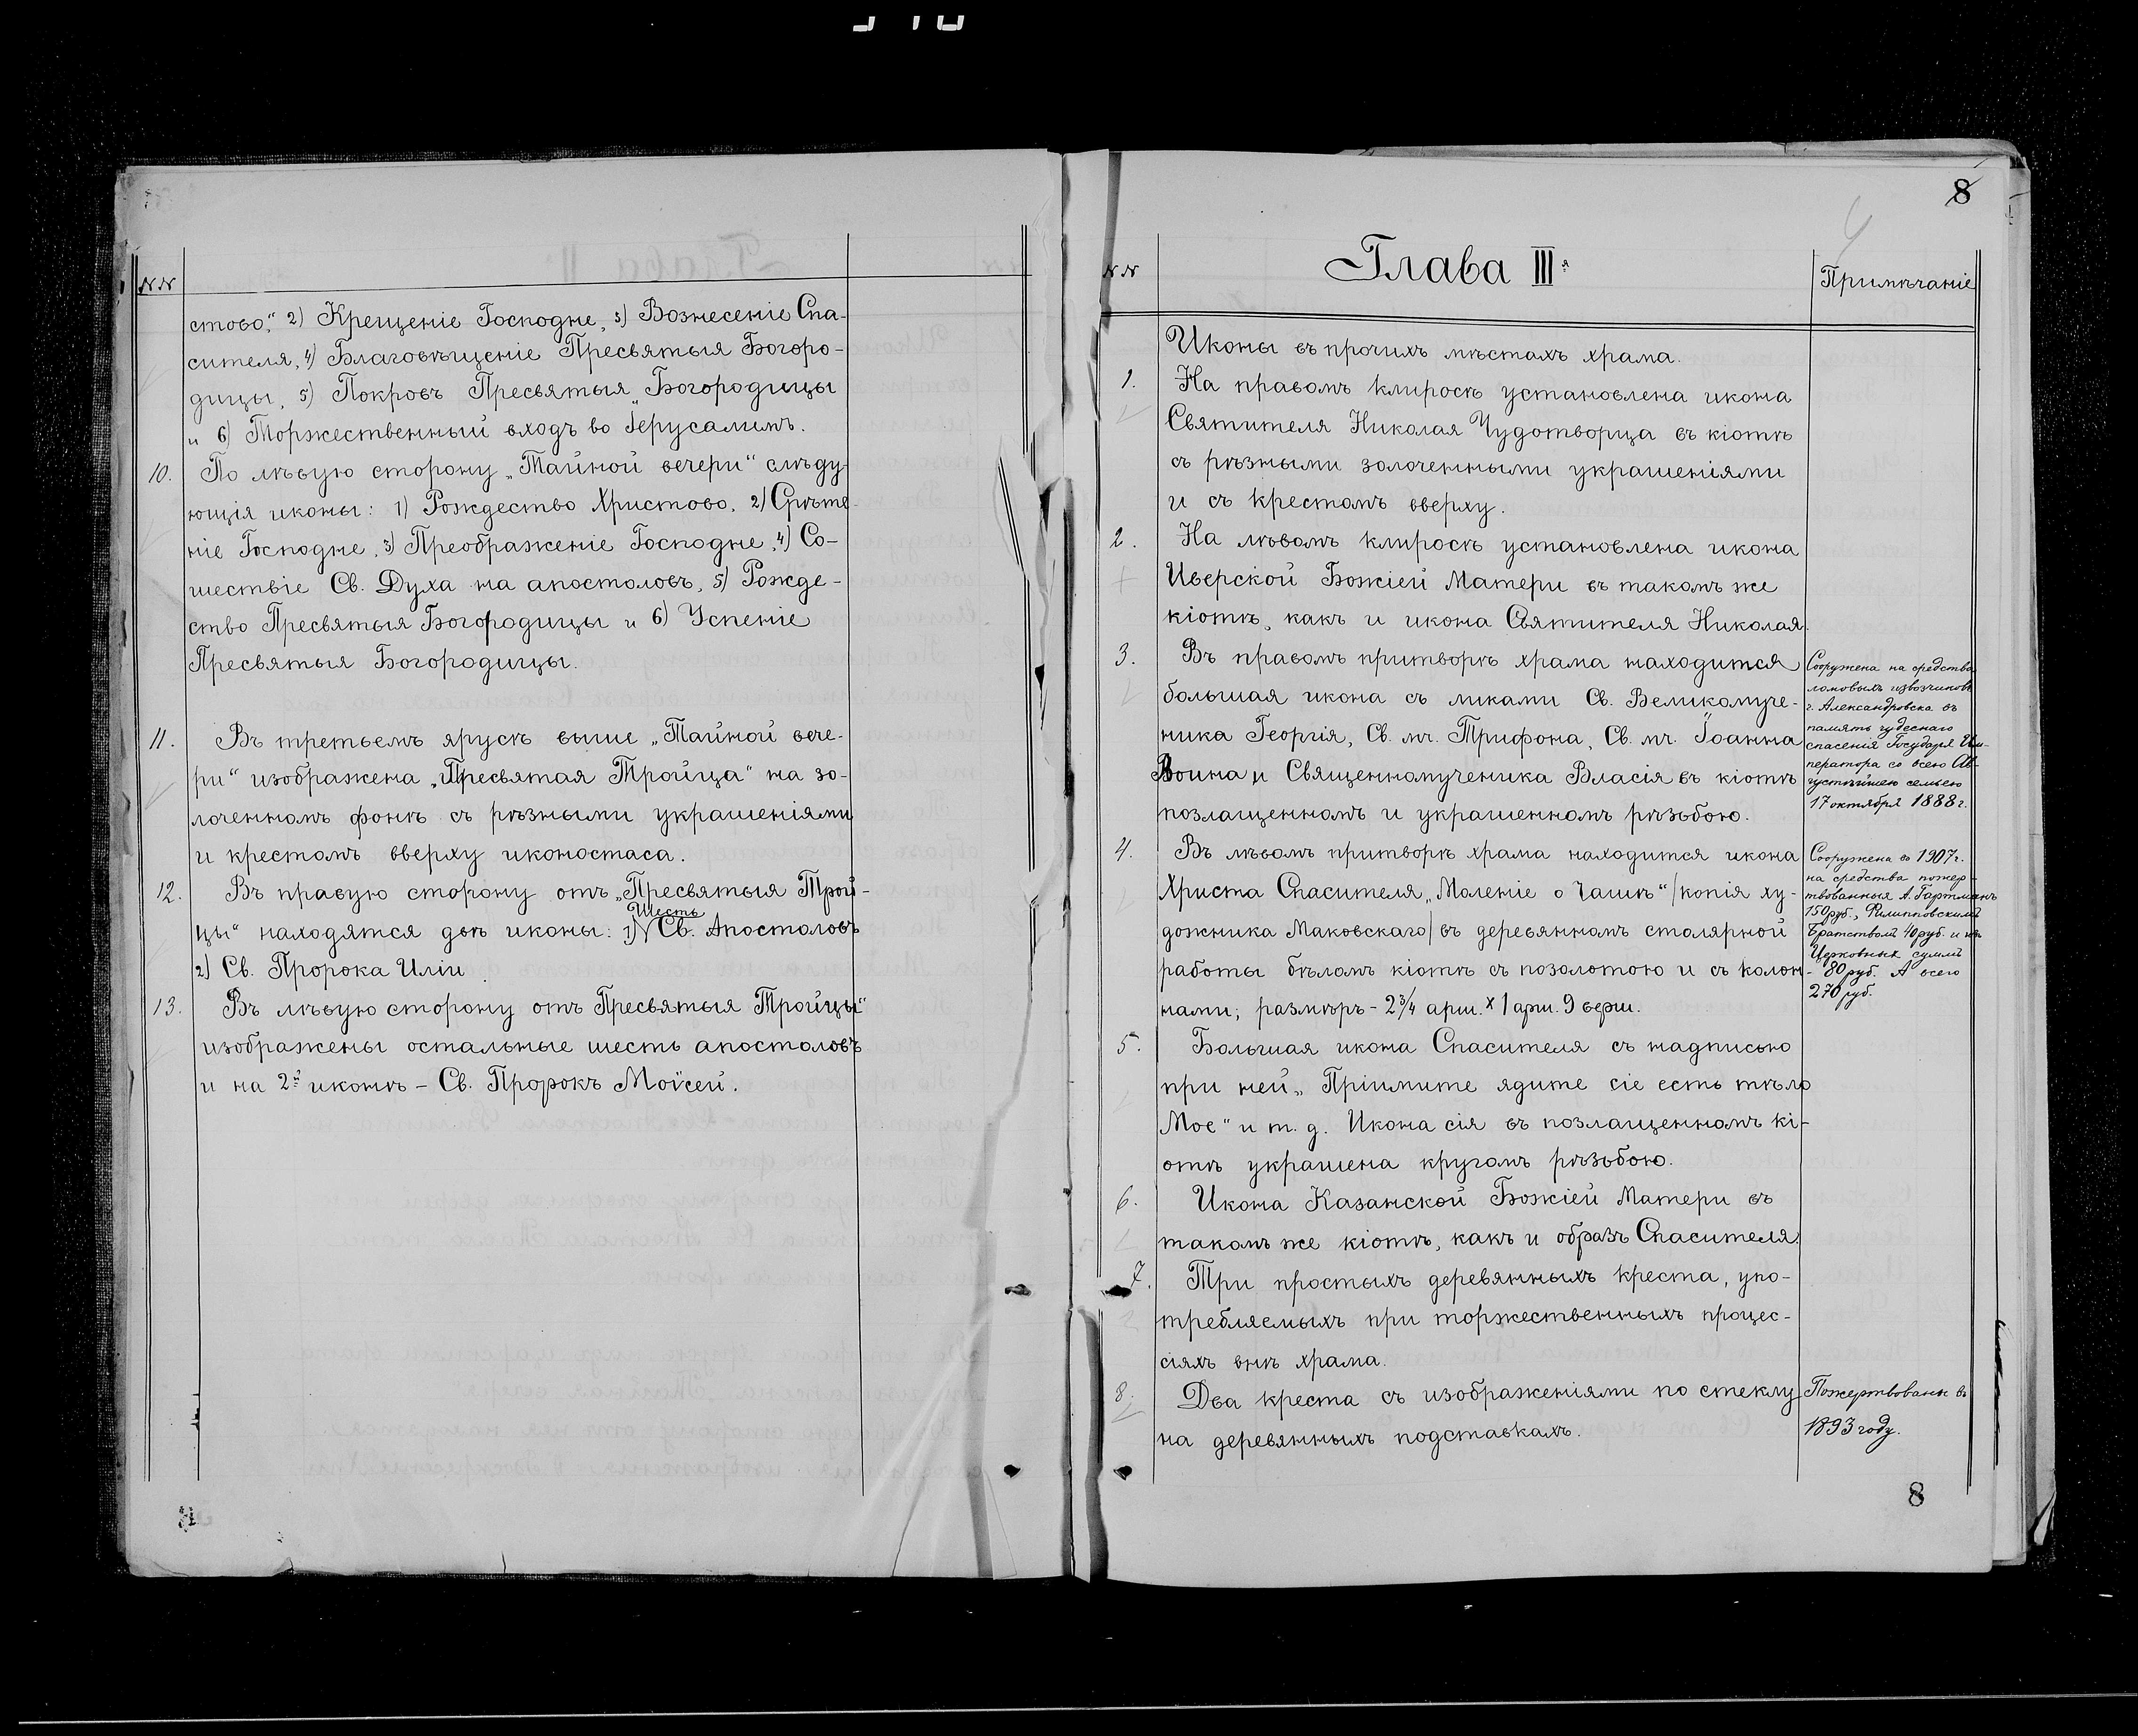 NN
стово", 2) Крещеніе Господне, 3) Вознесеніе Спа-
сителя, 4) Благовѣщеніе Пресвятыя Богоро-
дицы, 5) Покровъ Пресвятыя Богородицы
и 6) Торжественный входъ во Іерусалимъ.
10. По лѣвую сторону „Тайной вечери" слѣду-
ющія иконы: 1) Рождество Христово, 2) Срѣте-
ніе Господне, 3) Преображеніе Господне, 4) Со-
шествіе Св. Духа на апостоловъ, 5) Рожде-
ство Пресвятыя Богородицы и 6) Успеніе
Пресвятыя Богородицы.
11. Въ третьемъ ярусѣ выше „Тайной вече-
ри" изображена „Пресвятая Троица" на зо-
лоченномъ фонѣ съ рѣзными украшеніями
и крестомъ вверху иконостаса.
12. Въ правую сторону отъ „Пресвятыя Трой-
Шесть
цы" находятся двѣ иконы: 1) Св. Апостоловъ
2) Св. Пророка Иліи
13. Въ лѣвую сторону отъ Пресвятыя Тройцы"
изображены остальные шесть апостоловъ
и на 2й иконѣ - Св. Пророкъ Моѵсей.
8
NN
Глава III я
Примѣчаніе
Иконы въ прочихъ мѣстахъ храма.
1. На правомъ клиросѣ установлена икона
Святителя Николая Чудотворца въ кіотѣ
съ рѣзными золоченными украшеніями
и съ крестомъ вверху.
2. На лѣвомъ клиросѣ установлена икона
Иверской Божіей Матери въ такомъ же
кіотѣ, какъ и икона Святителя Николая.
3. Въ правомъ притворѣ храма находится
большая икона съ ликами Св. Великомуче-
ника Георгія, Св. мч. Трифона, Св. мч. Іоанна
Воина и Священномученика Власія въ кіотѣ
позлащенномъ и украшенномъ рѣзьбою.
Сооружена на средства
ломовыхъ извозчиковъ
г. Александровска въ
память чудеснаго
спасенія Государя Им-
ператора со всею Ав-
густѣйшею семьею
17 октября 1888 г.
4. Въ лѣвомъ притворѣ храма находится икона
Христа Спасителя „Моленіе о Чашѣ" /копія ху-
дожника Маковскаго/ въ деревянномъ столярной
работы бѣломъ кіотѣ съ позолотою и съ колон-
нами; размѣръ - 2 3/4 арш. х 1 арш. 9 верш.
Сооружена въ 1907 г.
на средства пожер-
твованныя А. Гартманъ
150 руб., Филипповскимъ
Братствомъ 40 руб. и изъ
Церковныхъ суммъ
- 80 руб. А всего
270 руб.
5. Большая икона Спасителя съ надписью
при ней „Пріимите ядите сіе есть тѣло
Мое" и т. д. Икона сія въ позлащенномъ кі-
отѣ украшена кругомъ рѣзьбою.
6. Икона Казанской Божіей Матери въ
такомъ же кіотѣ, какъ и образъ Спасителя.
7. Три простыхъ деревянныхъ креста, упо-
требляемыхъ при торжественныхъ процес-
сіяхъ внѣ храма.
8. Два креста съ изображеніями по стеклу
на деревянныхъ подставкахъ.
Пожертвованы въ
1893 году.
8